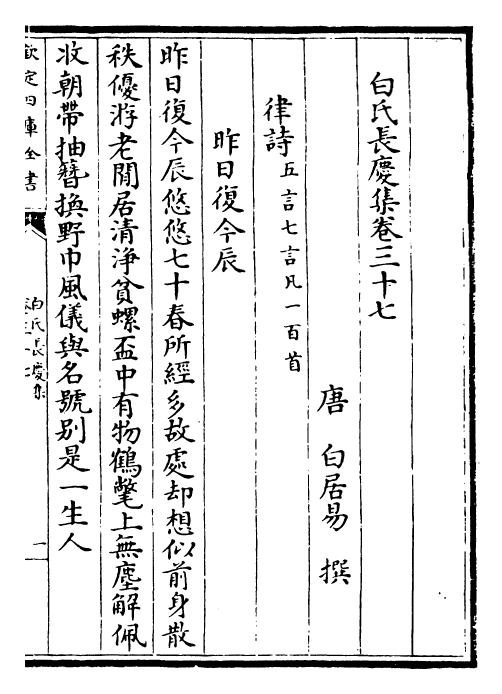 白氏長慶集巻三十七
唐　白居易　撰
律詩五言七言凡一百首
昨日復今辰
昨日復今辰悠悠七十春所經多故處却想似前身散
秩優游老閒居清浄貧螺盃中有物鶴氅上無塵解佩
收朝帶抽簮換野巾風儀與名號别是一生人
欽定四庫全書
白氏長慶集
一